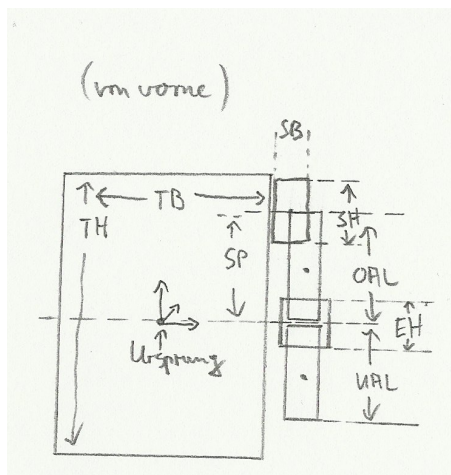 (von vorne)
SB
TB
TH
SH
SP
OAL
EH
Ursprung
UAL